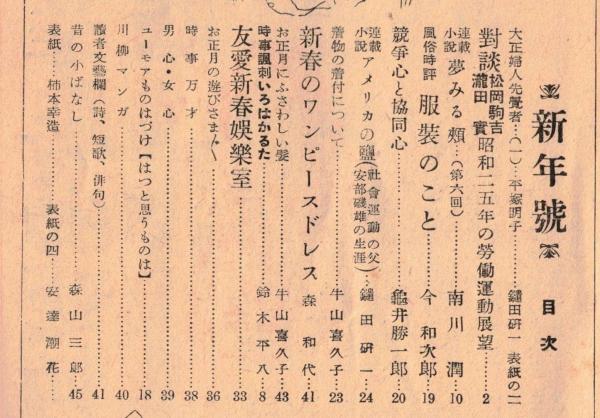 新年號
目次
大正婦人先覺者（一）…平塚明子……鑓田研一 表紙の二
對談 松岡駒吉 瀧田實 昭和二五年の勞働運動展望……2
連載小説 夢みる頰…（第六回）……南川潤……10
風俗時評 服裝のこと……今和次郎……19
競爭心と協同心……龜井勝一郎……20
連載小説 アメリカの鹽（社會運動の父 安部磯雄の生涯）…鑓田研一……24
着物の着付について……牛山喜久子……23
新春のワンピースドレス 森和代……41
お正月にふさわしい髮……牛山喜久子……43
時事諷刺いろはかるた……鈴木平八……8
友愛新春娯樂室……33
お正月の遊びさま〲……36
時事万才……38
男心・女心……39
ユーモアものはづけ【はつと思うものは】……18
川柳マンガ……40
讀者文藝欄（詩、短歌、俳句）……41
昔の小ばなし……森山三郎……45
表紙……柿本幸造……表紙の四……安達潮花…